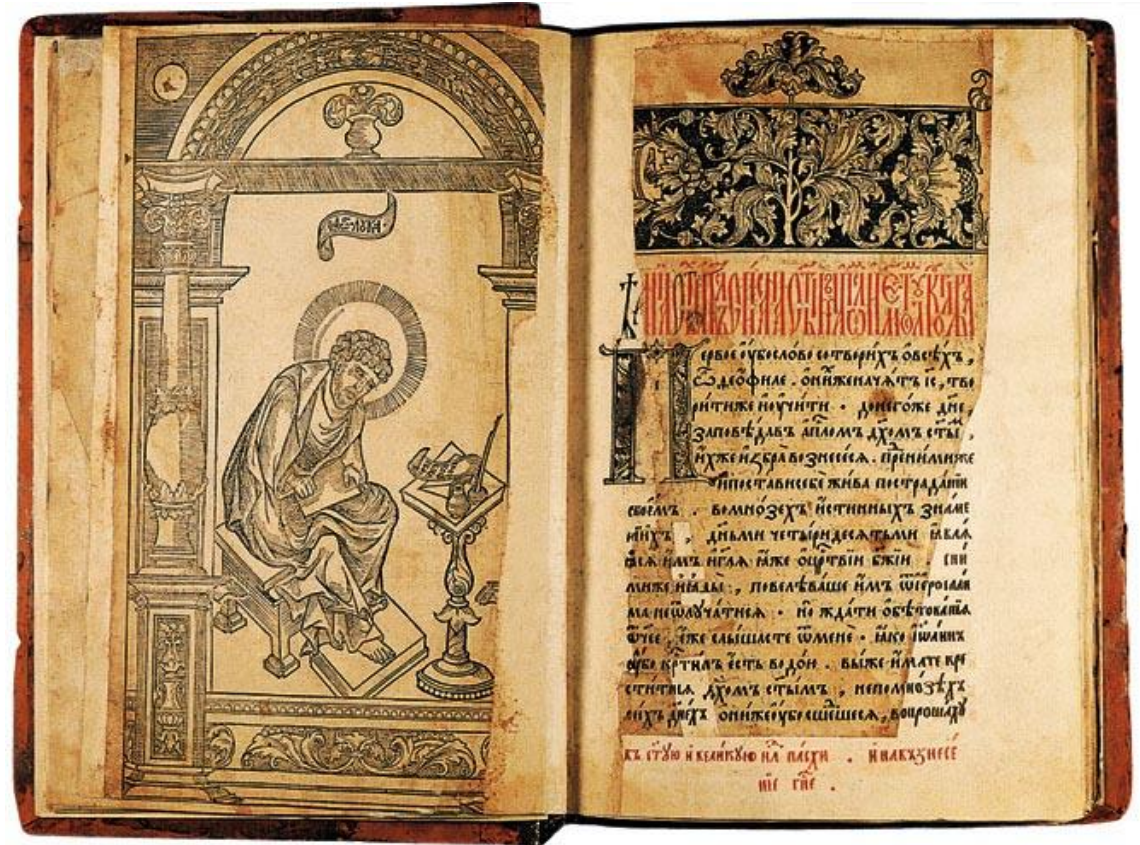 Первое ѹбо слово сотворихъ ѡ всѣхъ,
ѽ деѡфиле. ѡ ниⷯже начатъ іс҃, тво
рити же и ѹчити. до негоже дне,
заповѣдавъ ап҃лѡмъ дх҃омъ ст҃ы,
ихже избра вознесесѧ. пред ними же
и постави себе жива по страданїи
своемъ. во мнозехъ истинныхъ знаме
нїихъ, дньми четыридесѧтьми ꙗвлѧ
ꙗсѧ имъ и гл҃ѧ ꙗже о цр҃твїи бж҃їи. с ни
миже и ꙗды, повелѣваше имъ ѿ іеросали
ма не ѿлучатисѧ. но ждати обѣтованїѧ
ѿчее, еже слышасте ѿ мене. ꙗко іѡаннъ
ѹбо кр҃тилъ есть водою. вы же имате кре
ститисѧ дх҃омъ ст҃ымъ, не по мнозѣхъ
сихъ дн҃ехъ они же ѹбо сшедшеесѧ, вопрошахꙋ
въ ст҃ꙋю и великꙋю нл҃ю пасхи. и на възнесе
нїе гн҃е.